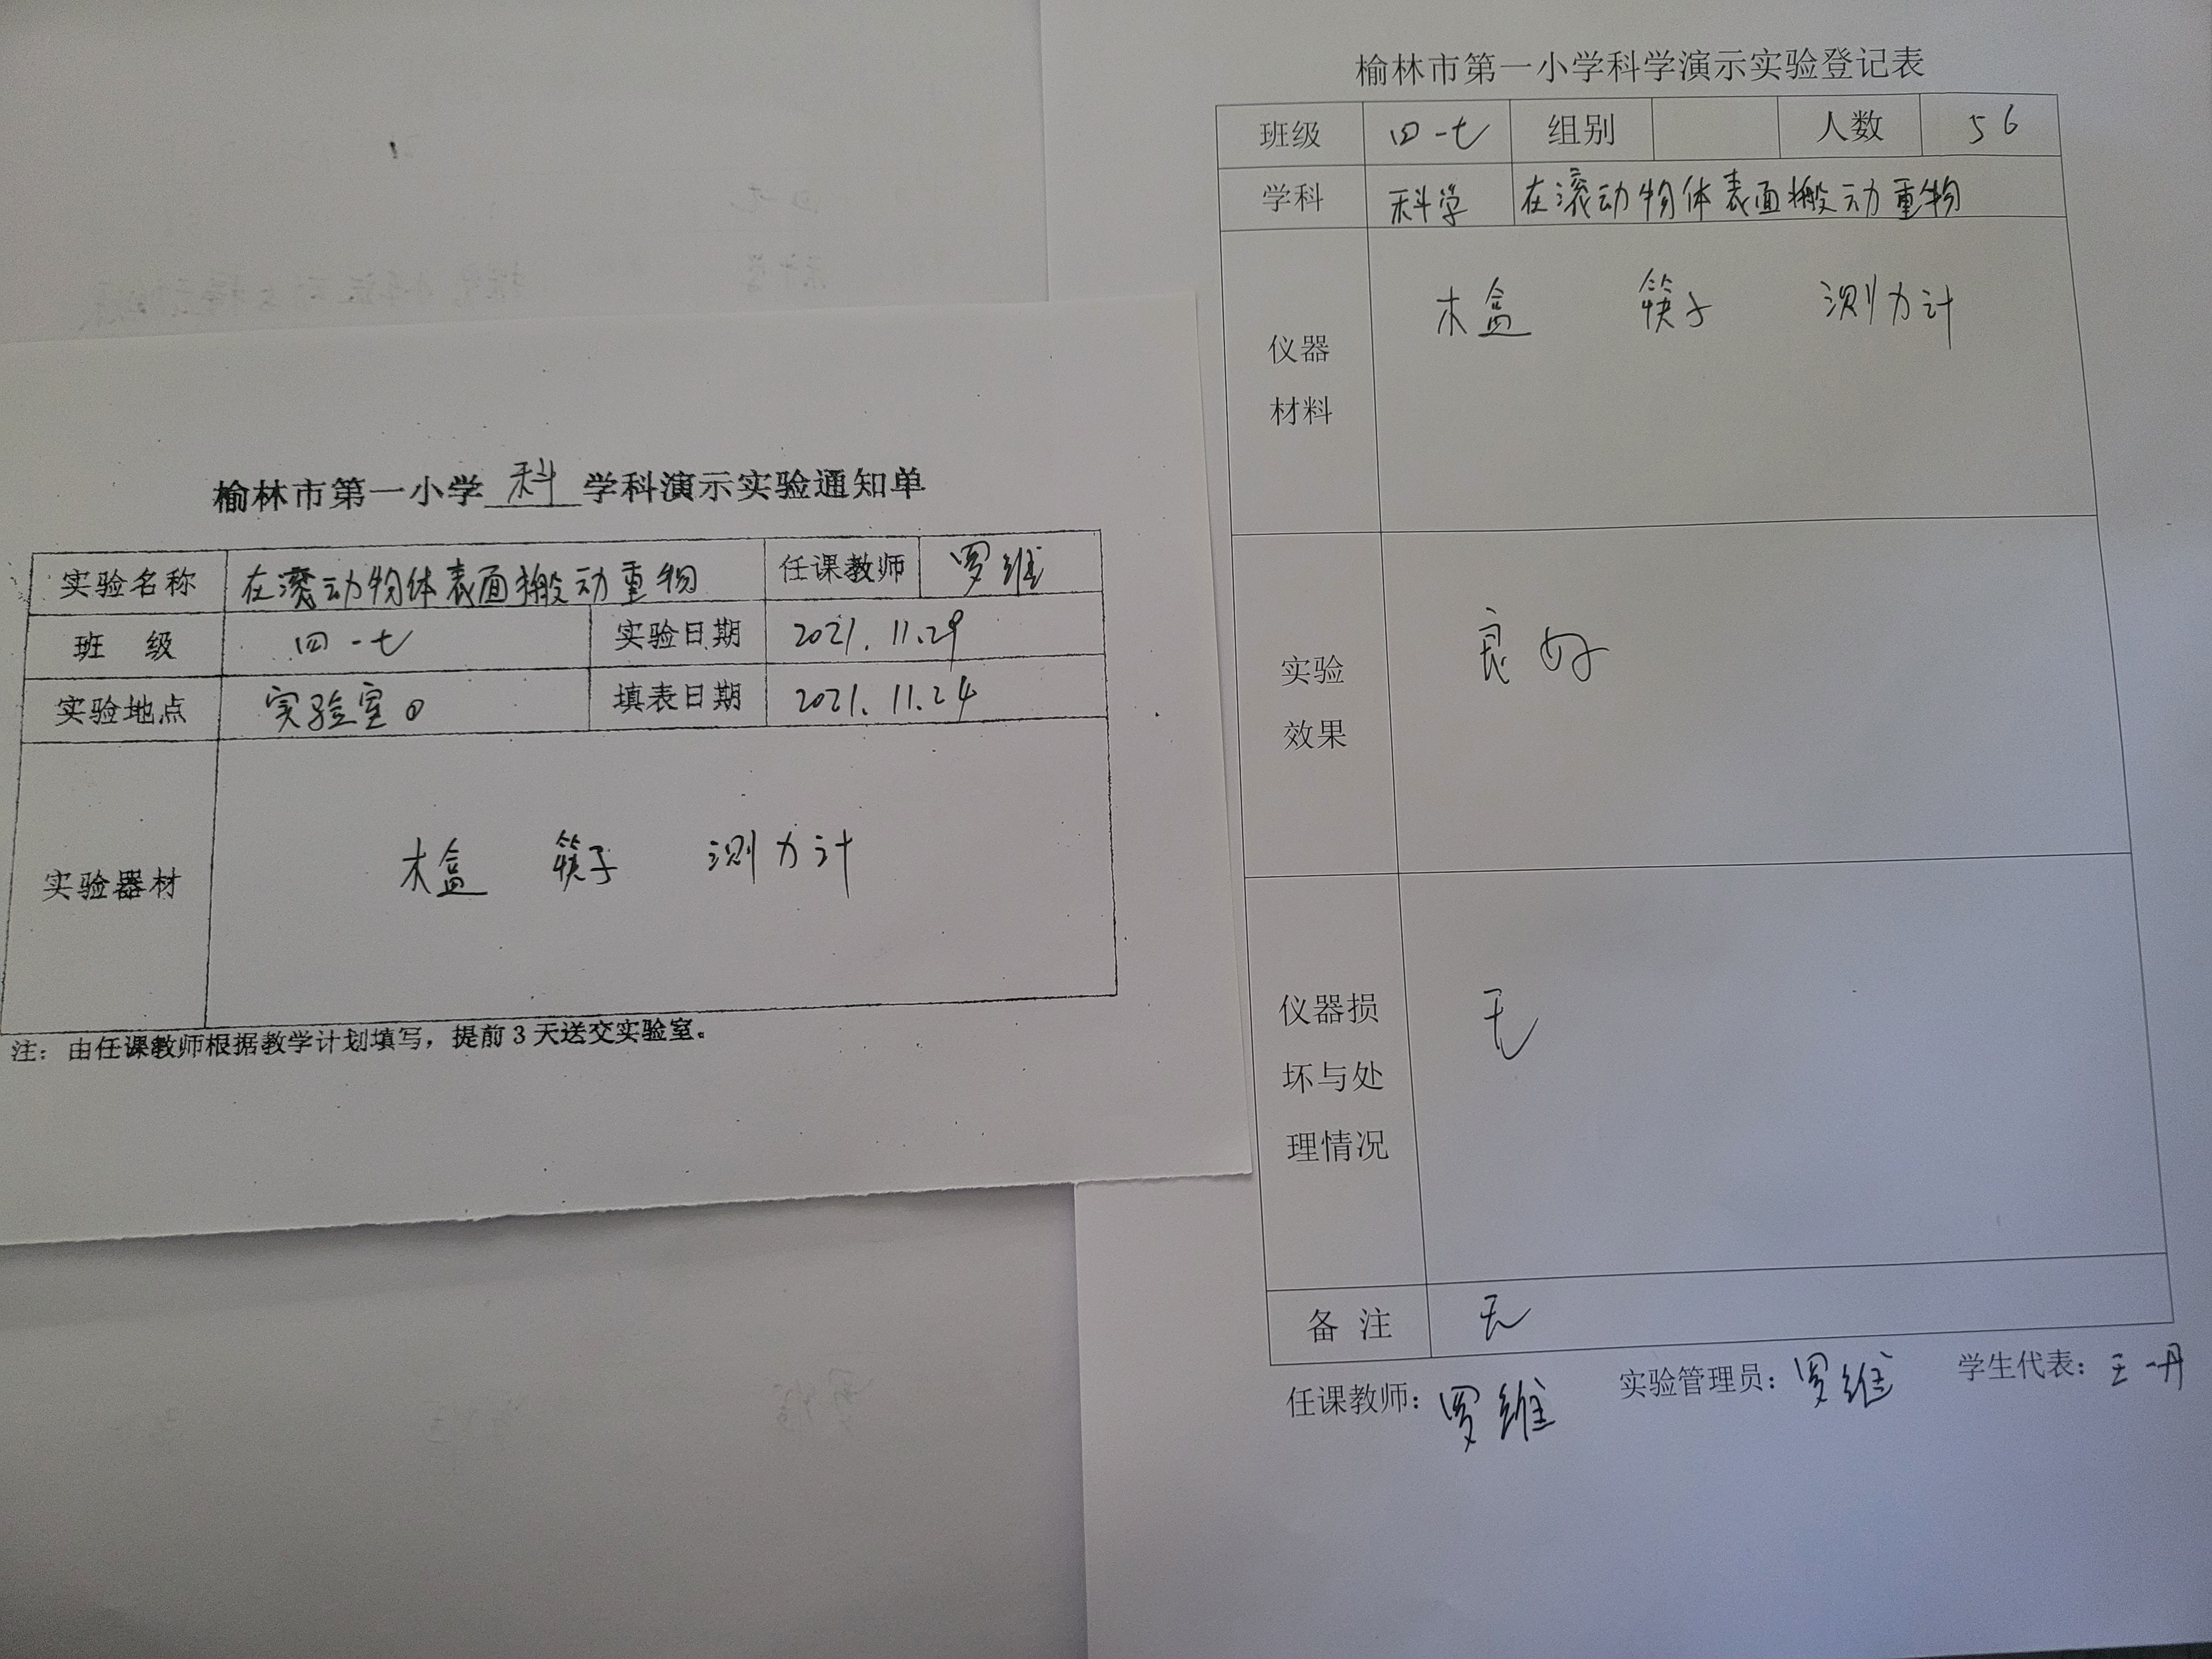 榆林市第一小学 科 学科演示实验通知单
实验名称 在滚动物体表面搬动重物 任课教师 罗维
班 级 四-七 实验日期 2021.11.29
实验地点 实验室 填表日期 2021.11.24
实验器材 木盒 筷子 测力计
注：由任课教师根据教学计划填写，提前3天送交实验室。
榆林市第一小学科学演示实验登记表
班级 四-七 组别 人数 56
学科 科学 在滚动物体表面搬动重物
仪器
材料
木盒 筷子 测力计
实验
效果
良好
仪器损
坏与处
理情况
无
备 注 无
任课教师：罗维 实验管理员：罗维 学生代表：王一丹